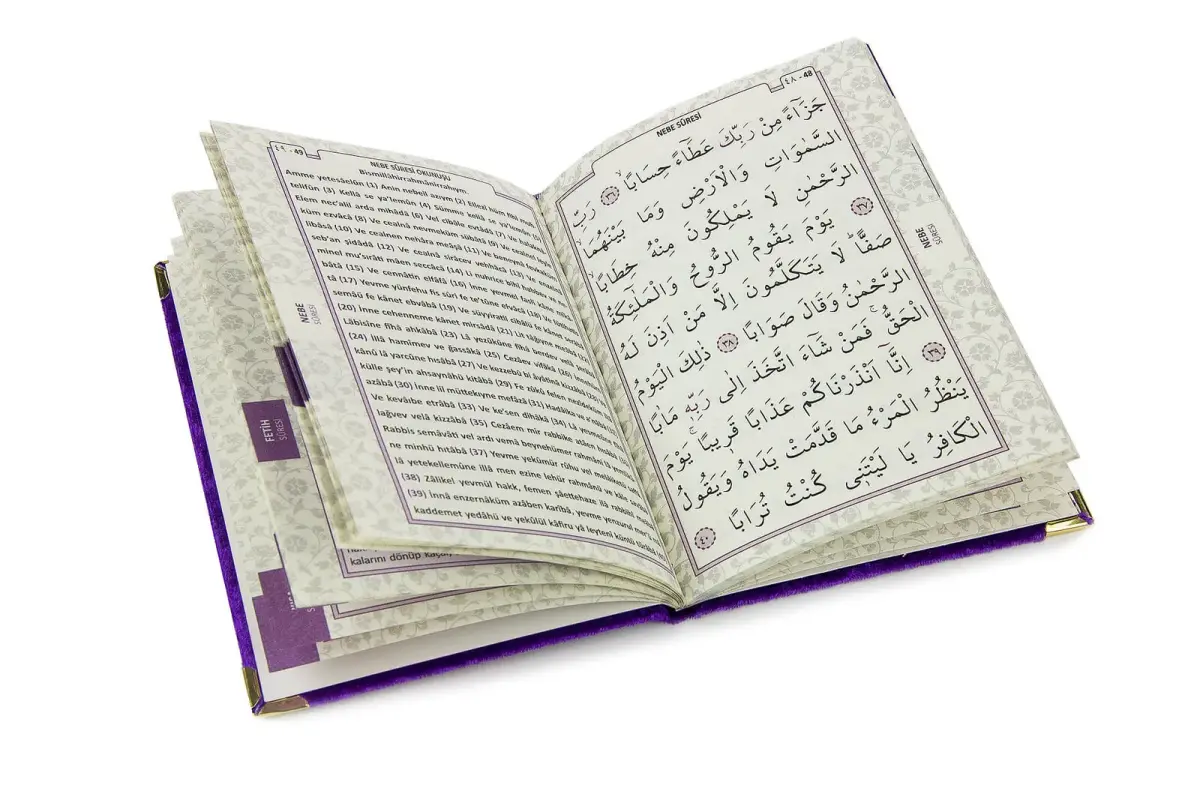 ٤٨ - 48
NEBE SÛRESİ
جَزَٓاءً مِنْ رَبِّكَ عَطَٓاءً حِسَابًاۙ ٣٦ رَبِّ
السَّمٰوَاتِ وَالْاَرْضِ وَمَا بَيْنَهُمَا
الرَّحْمٰنِ لَا يَمْلِكُونَ مِنْهُ خِطَابًاۚ
٣٧ يَوْمَ يَقُومُ الرُّوحُ وَالْمَلٰٓئِكَةُ
صَفًّاۜ لَا يَتَكَلَّمُونَ اِلَّا مَنْ اَذِنَ لَهُ
الرَّحْمٰنُ وَقَالَ صَوَابًا ٣٨ ذٰلِكَ الْيَوْمُ
الْحَقُّۚ فَمَنْ شَٓاءَ اتَّخَذَ اِلٰى رَبِّه۪ مَاٰبًا
٣٩ اِنَّٓا اَنْذَرْنَاكُمْ عَذَابًا قَر۪يبًاۚ يَوْمَ
يَنْظُرُ الْمَرْءُ مَا قَدَّمَتْ يَدَاهُ وَيَقُولُ
الْكَافِرُ يَا لَيْتَن۪ى كُنْتُ تُرَابًا ٤٠
NEBE
SÛRESİ
٤٩ - 49
NEBE SÛRESİ OKUNUŞU
Bismillâhirrahmânirrahıym.
Amme yetesâelûn (1) Anin nebeil azıym (2) Ellezî hüm fîhi muh
telifûn (3) Kellâ se ya'lemûn (4) Sümme kellâ se ya'lemûn
Elem nec'alil arda mihâdâ (6) Vel cibâle evtâdâ (7) Ve halaknâ
küm ezvâcâ (8) Ve cealnâ nevmeküm sübâtâ (9) Ve cealnel leyle
libâsâ (10) Ve cealnen nehâra meâşâ (11) Ve beneynâ fevkaküm
seb'an şidâdâ (12) Ve cealnâ sirâcev vehhâcâ (13) Ve enzelnâ
minel mu'sırâti mâen seccâcâ (14) Li nuhrice bihî habbev ve ne
bâtâ (15) Ve cennâtin elfâfâ (16) İnne yevmel fasli kâne mîkâ
tâ (17) Yevme yünfehu fis sûri fe te'tûne efvâcâ (18) Ve fütihatis
semâü fe kânet ebvâbâ (19) Ve süyyiratil cibâlü fe kânet serâbâ
(20) İnne cehenneme kânet mirsâdâ (21) Lit tâğiyne meâbâ (22)
Lâbisîne fîhâ ahkâbâ (23) Lâ yezûkûne fîhâ berdev velâ şerâbâ
(24) İllâ hamîmev ve ğassâkâ (25) Cezâev vifâkâ (26) İnnehüm
kânû lâ yarcûne hısâbâ (27) Ve kezzebû bi âyâtinâ kizzâbâ (28)
külle şey'in ahsaynâhü kitâbâ (29) Fe zûkû felen nezîdeküm
azâbâ (30) İnne lil müttekıyne mefâzâ (31) Hadâika ve a'nâbâ
Ve kevâıbe etrâbâ (33) Ve ke'sen dihâkâ (34) Lâ yesmeûne fîhâ
lağvev velâ kizzâbâ (35) Cezâem mir rabbike atâen hısâbâ (36)
Rabbis semâvâti vel ardı vemâ beynehümer rahmâni lâ yemlikû
ne minhü hıtâbâ (37) Yevme yekûmür rûhu vel melâiketü saffâ
lâ yetekellemûne illâ men ezine lehür rahmânü ve kâle savâbâ
(38) Zâlikel yevmül hakk, femen şâettehaze ilâ rabbihî meâbâ
(39) İnnâ enzernâküm azâben karîbâ, yevme yenzurul mer'ü mâ
kaddemet yedâhü ve yekûlül kâfiru yâ leytenî küntü türâbâ (40)
NEBE
SÛRESİ
FETİH
SÛRESİ
kalarını dönüp kaçar